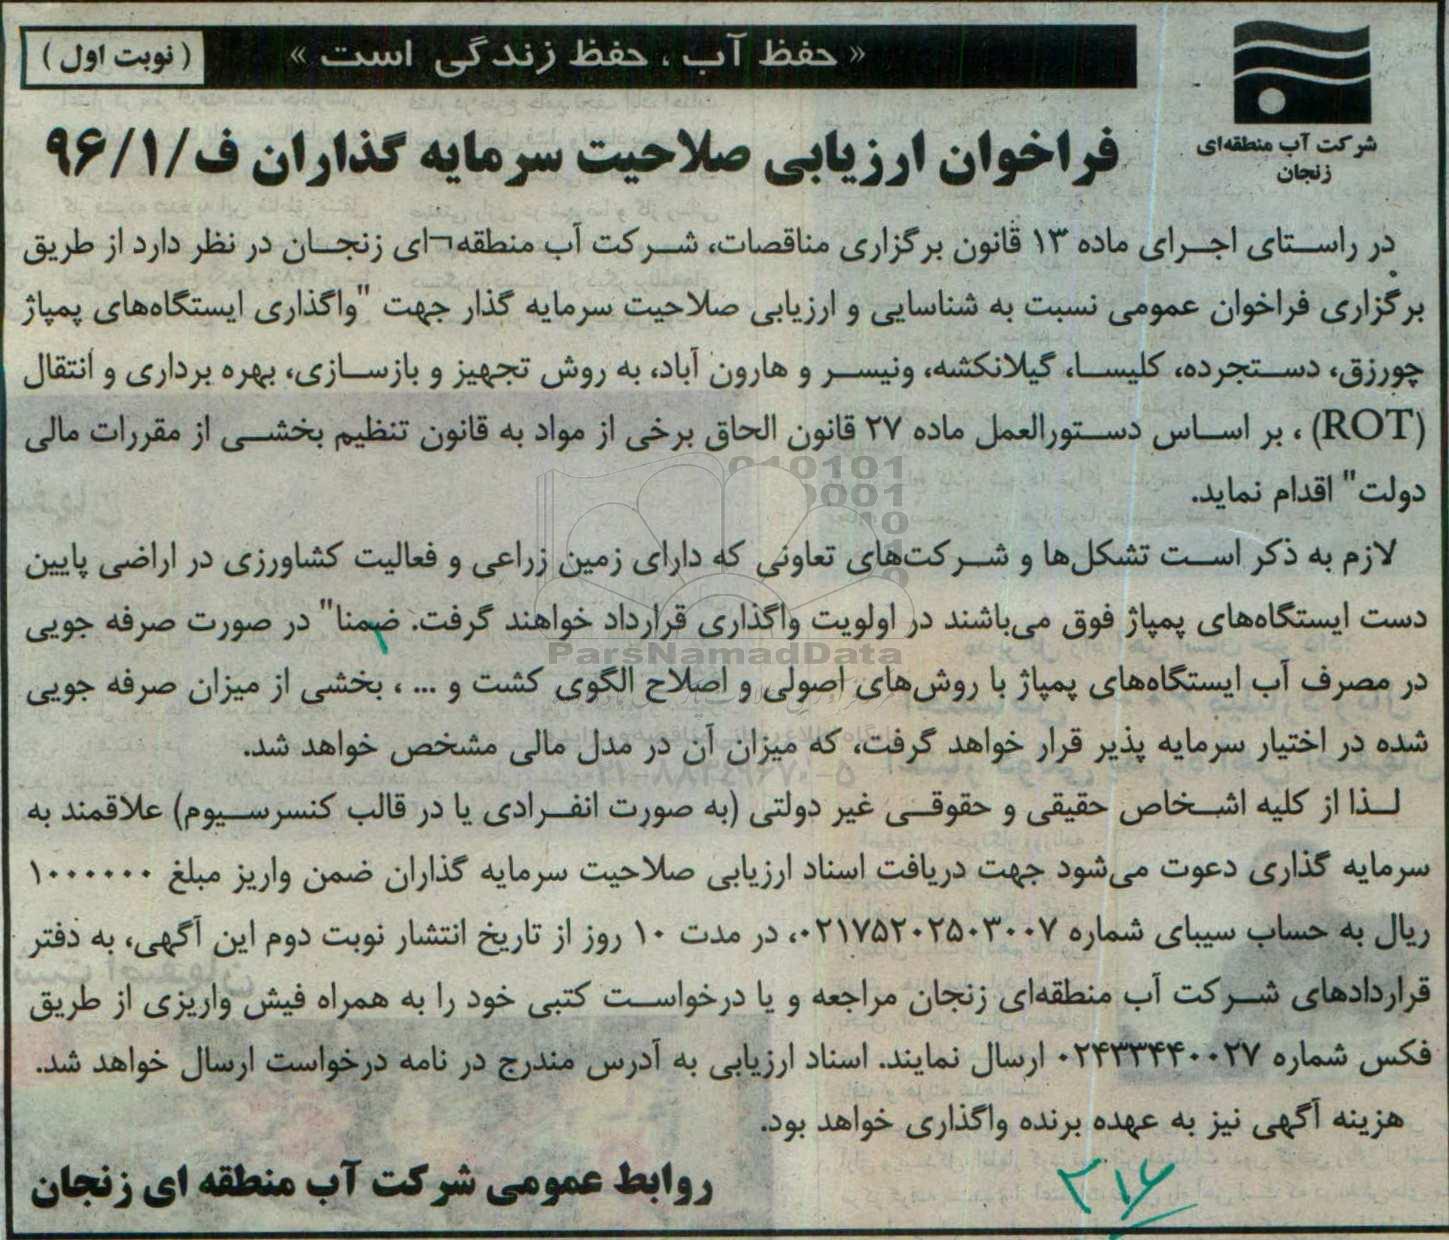 « حفظ آب ، حفظ زندگی است »
( نوبت اول )
شرکت آب منطقه‌ای
زنجان
فراخوان ارزیابی صلاحیت سرمایه گذاران ف/۹۶/۱
در راستای اجرای ماده ۱۳ قانون برگزاری مناقصات، شرکت آب منطقه¬ای زنجان در نظر دارد از طریق
برگزاری فراخوان عمومی نسبت به شناسایی و ارزیابی صلاحیت سرمایه گذار جهت "واگذاری ایستگاه‌های پمپاژ
چورزق، دستجرده، کلیسا، گیلانکشه، ونیسر و هارون آباد، به روش تجهیز و بازسازی، بهره برداری و انتقال
(ROT) ، بر اساس دستورالعمل ماده ۲۷ قانون الحاق برخی از مواد به قانون تنظیم بخشی از مقررات مالی
دولت" اقدام نماید.
لازم به ذکر است تشکل‌ها و شرکت‌های تعاونی که دارای زمین زراعی و فعالیت کشاورزی در اراضی پایین
دست ایستگاه‌های پمپاژ فوق می‌باشند در اولویت واگذاری قرارداد خواهند گرفت. ضمنا" در صورت صرفه جویی
در مصرف آب ایستگاه‌های پمپاژ با روش‌های اصولی و اصلاح الگوی کشت و ... ، بخشی از میزان صرفه جویی
شده در اختیار سرمایه پذیر قرار خواهد گرفت، که میزان آن در مدل مالی مشخص خواهد شد.
لذا از کلیه اشخاص حقیقی و حقوقی غیر دولتی (به صورت انفرادی یا در قالب کنسرسیوم) علاقمند به
سرمایه گذاری دعوت می‌شود جهت دریافت اسناد ارزیابی صلاحیت سرمایه گذاران ضمن واریز مبلغ ۱۰۰۰۰۰۰
ریال به حساب سیبای شماره ۰۲۱۷۵۲۰۲۵۰۳۰۰۷، در مدت ۱۰ روز از تاریخ انتشار نوبت دوم این آگهی، به دفتر
قراردادهای شرکت آب منطقه‌ای زنجان مراجعه و یا درخواست کتبی خود را به همراه فیش واریزی از طریق
فکس شماره ۰۲۴۳۳۴۴۰۰۲۷ ارسال نمایند. اسناد ارزیابی به آدرس مندرج در نامه درخواست ارسال خواهد شد.
هزینه آگهی نیز به عهده برنده واگذاری خواهد بود.
روابط عمومی شرکت آب منطقه ای زنجان
۲۱۶
ParsNamadData